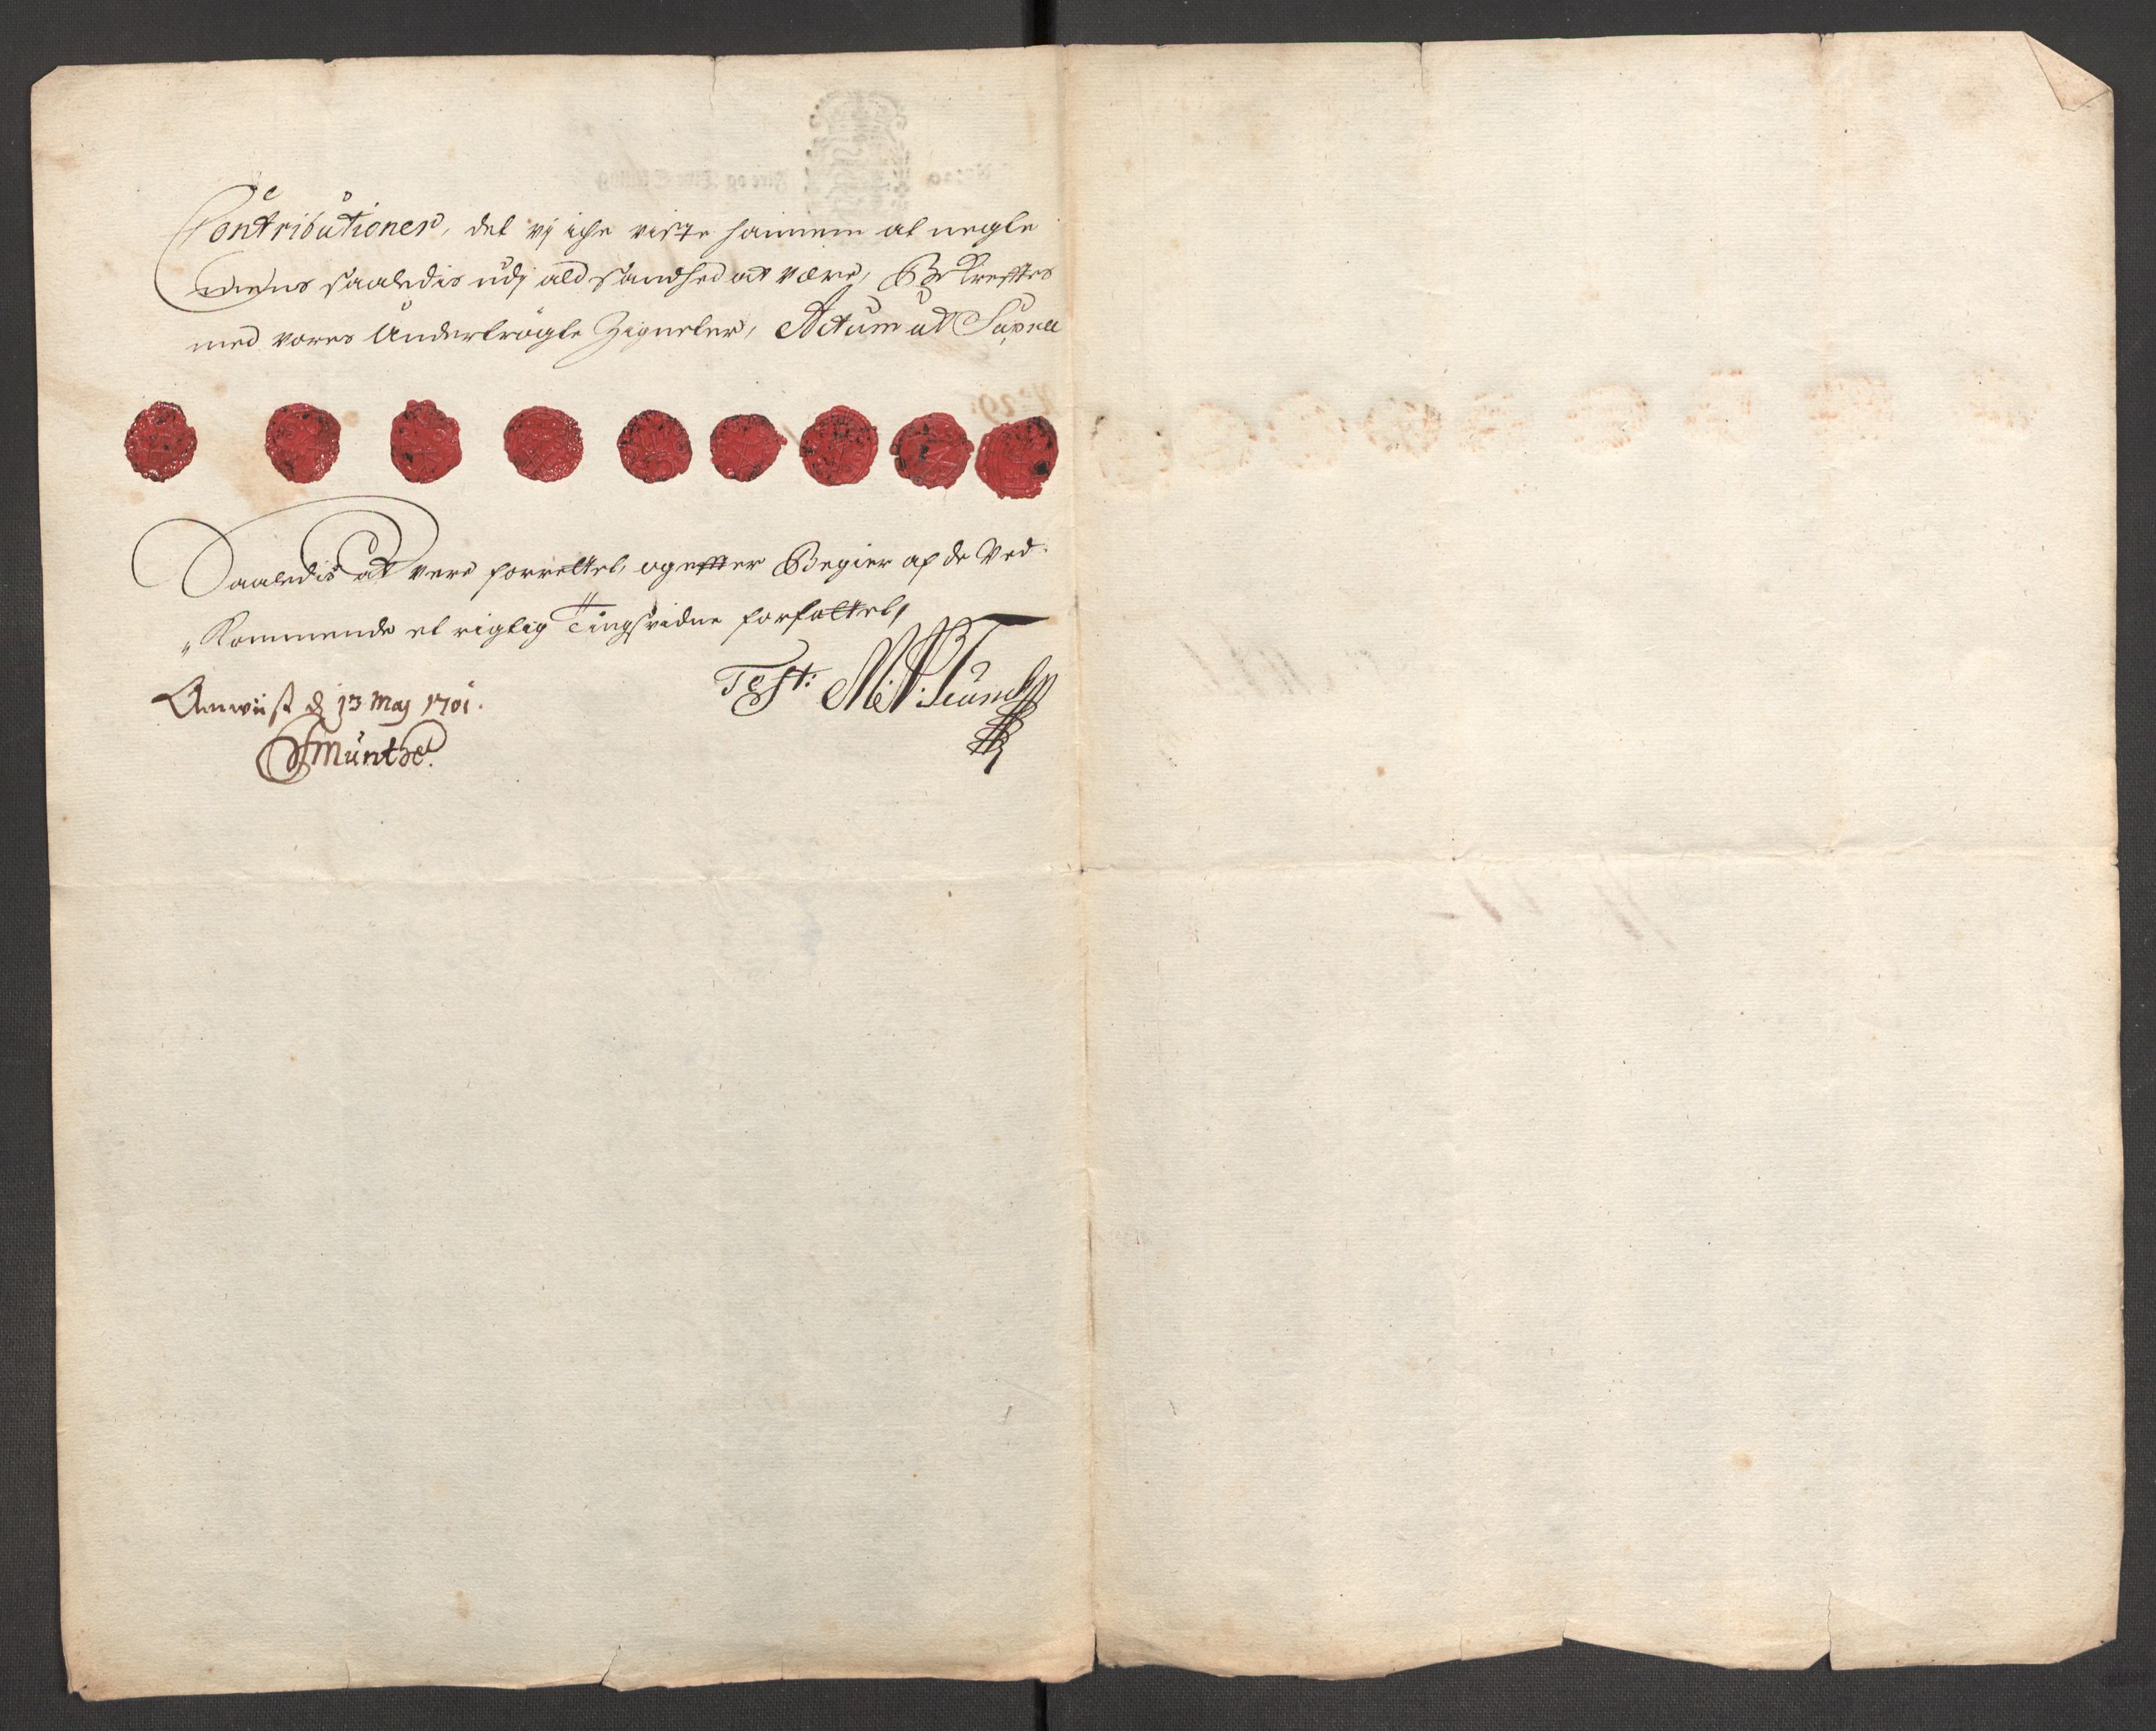 Contributioner, det vj iche viste hannem at negte
mens saaledis udj ald sandhed at være, Bekreftes
med vores Undertrögte Zigneter, Actum ut Supra
Saaledis at vere forrettet, og efter Begier af de Ved-
Kommende et rigtig Tingsvidne forfattet,
Test:
Anwiist d 13 Maj 1701.
Munthe.